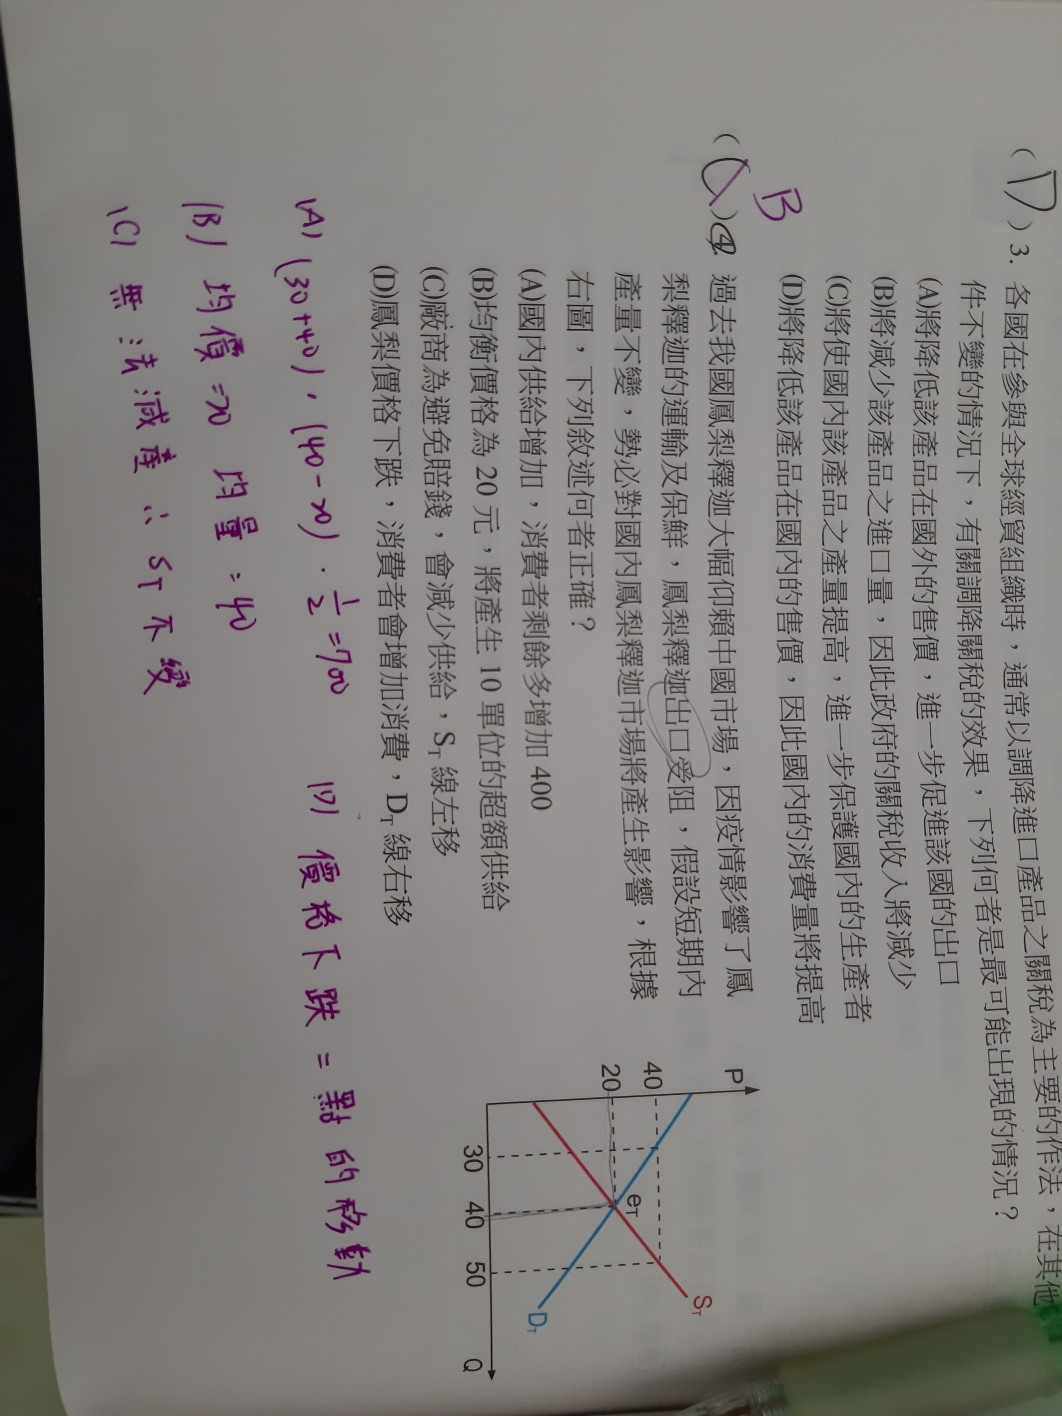 (D) 3. 各國在參與全球經貿組織時，通常以調降進口產品之關稅為主要的作法，在其他
件不變的情況下，有關調降關稅的效果，下列何者是最可能出現的情況？
(A)將降低該產品在國外的售價，進一步促進該國的出口
(B)將減少該產品之進口量，因此政府的關稅收入將減少
(C)將使國內該產品之產量提高，進一步保護國內的生產者
(D)將降低該產品在國內的售價，因此國內的消費量將提高
B
( )4. 過去我國鳳梨釋迦大幅仰賴中國市場，因疫情影響了鳳
梨釋迦的運輸及保鮮，鳳梨釋迦出口受阻，假設短期內
產量不變，勢必對國內鳳梨釋迦市場將產生影響，根據
右圖，下列敘述何者正確？
(A)國內供給增加，消費者剩餘多增加 400
(B)均衡價格為 20 元，將產生 10 單位的超額供給
(C)廠商為避免賠錢，會減少供給，ST 線左移
(D)鳳梨價格下跌，消費者會增加消費，DT 線右移
P
40
20
eT
ST
DT
30 40 50 Q
(A) (30+40)．(40-20)．1/2=700
(B) 均價=20 均量=40
(C) 無法減產 ∴ ST 不變
(D) 價格下跌 = 點的移動